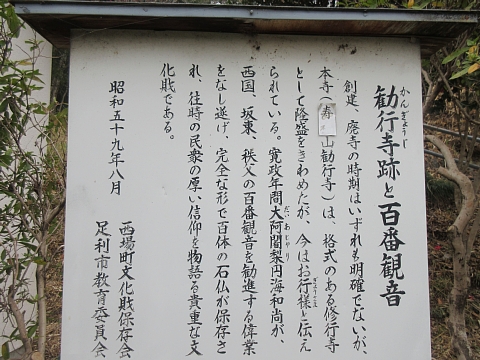 勧行寺跡と百番観音
かんぎょうじ
創建、廃寺の時期はいずれも明確でないが、
本寺(寿山勧行寺)は、格式のある修行寺
として隆盛をきわめたが、今はお行様と伝え
ぎょうさま
られている。寛政年間大阿闍梨円海和尚が、
だいあじゃり
西国、坂東、秩父の百番観音を勧進する偉業
をなし遂げ、完全な形で百体の石仏が保存さ
れ、往時の民衆の厚い信仰を物語る貴重な文
化財である。
昭和五十九年八月
西場町文化財保存会
足利市教育委員会